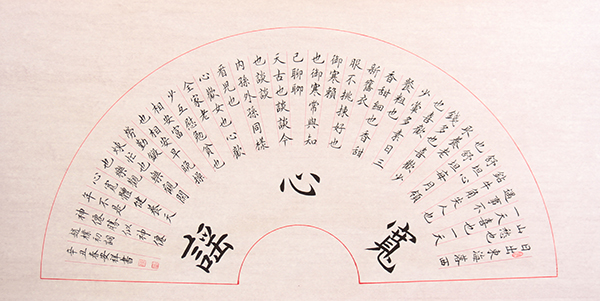 寬心謠
日出東海落西
山愁也
一天喜也一天
遇事不
鑽牛角尖人也
舒坦心
也舒坦每月領
取養老
錢多也喜歡少
也喜歡
少葷多素日三
餐粗也
香甜細也香甜
新舊衣
服不挑揀好也
御寒賴
也御寒常與知
己聊聊
天古也談談今
也談談
內孫外孫同樣
看兒也
心歡女也心歡
全家老
少互慰勉貧也
相安富
也相安早晚操
勞勤鍛
煉忙也樂觀閑
也樂觀
心寬體健養天
年不是
神仙勝似神仙
趙樸初詞
辛丑春安祥書